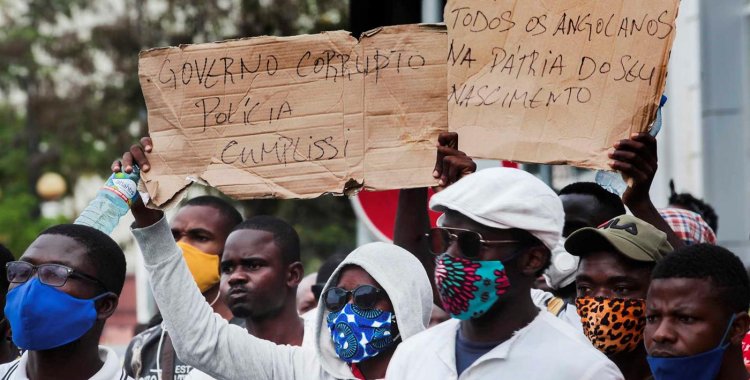 GOVERNO CORRUPTO
POLÍCIA
CUMPLISSI
TODOS OS ANGOLANOS
NA PÁTRIA DO SEU
NASCIMENTO